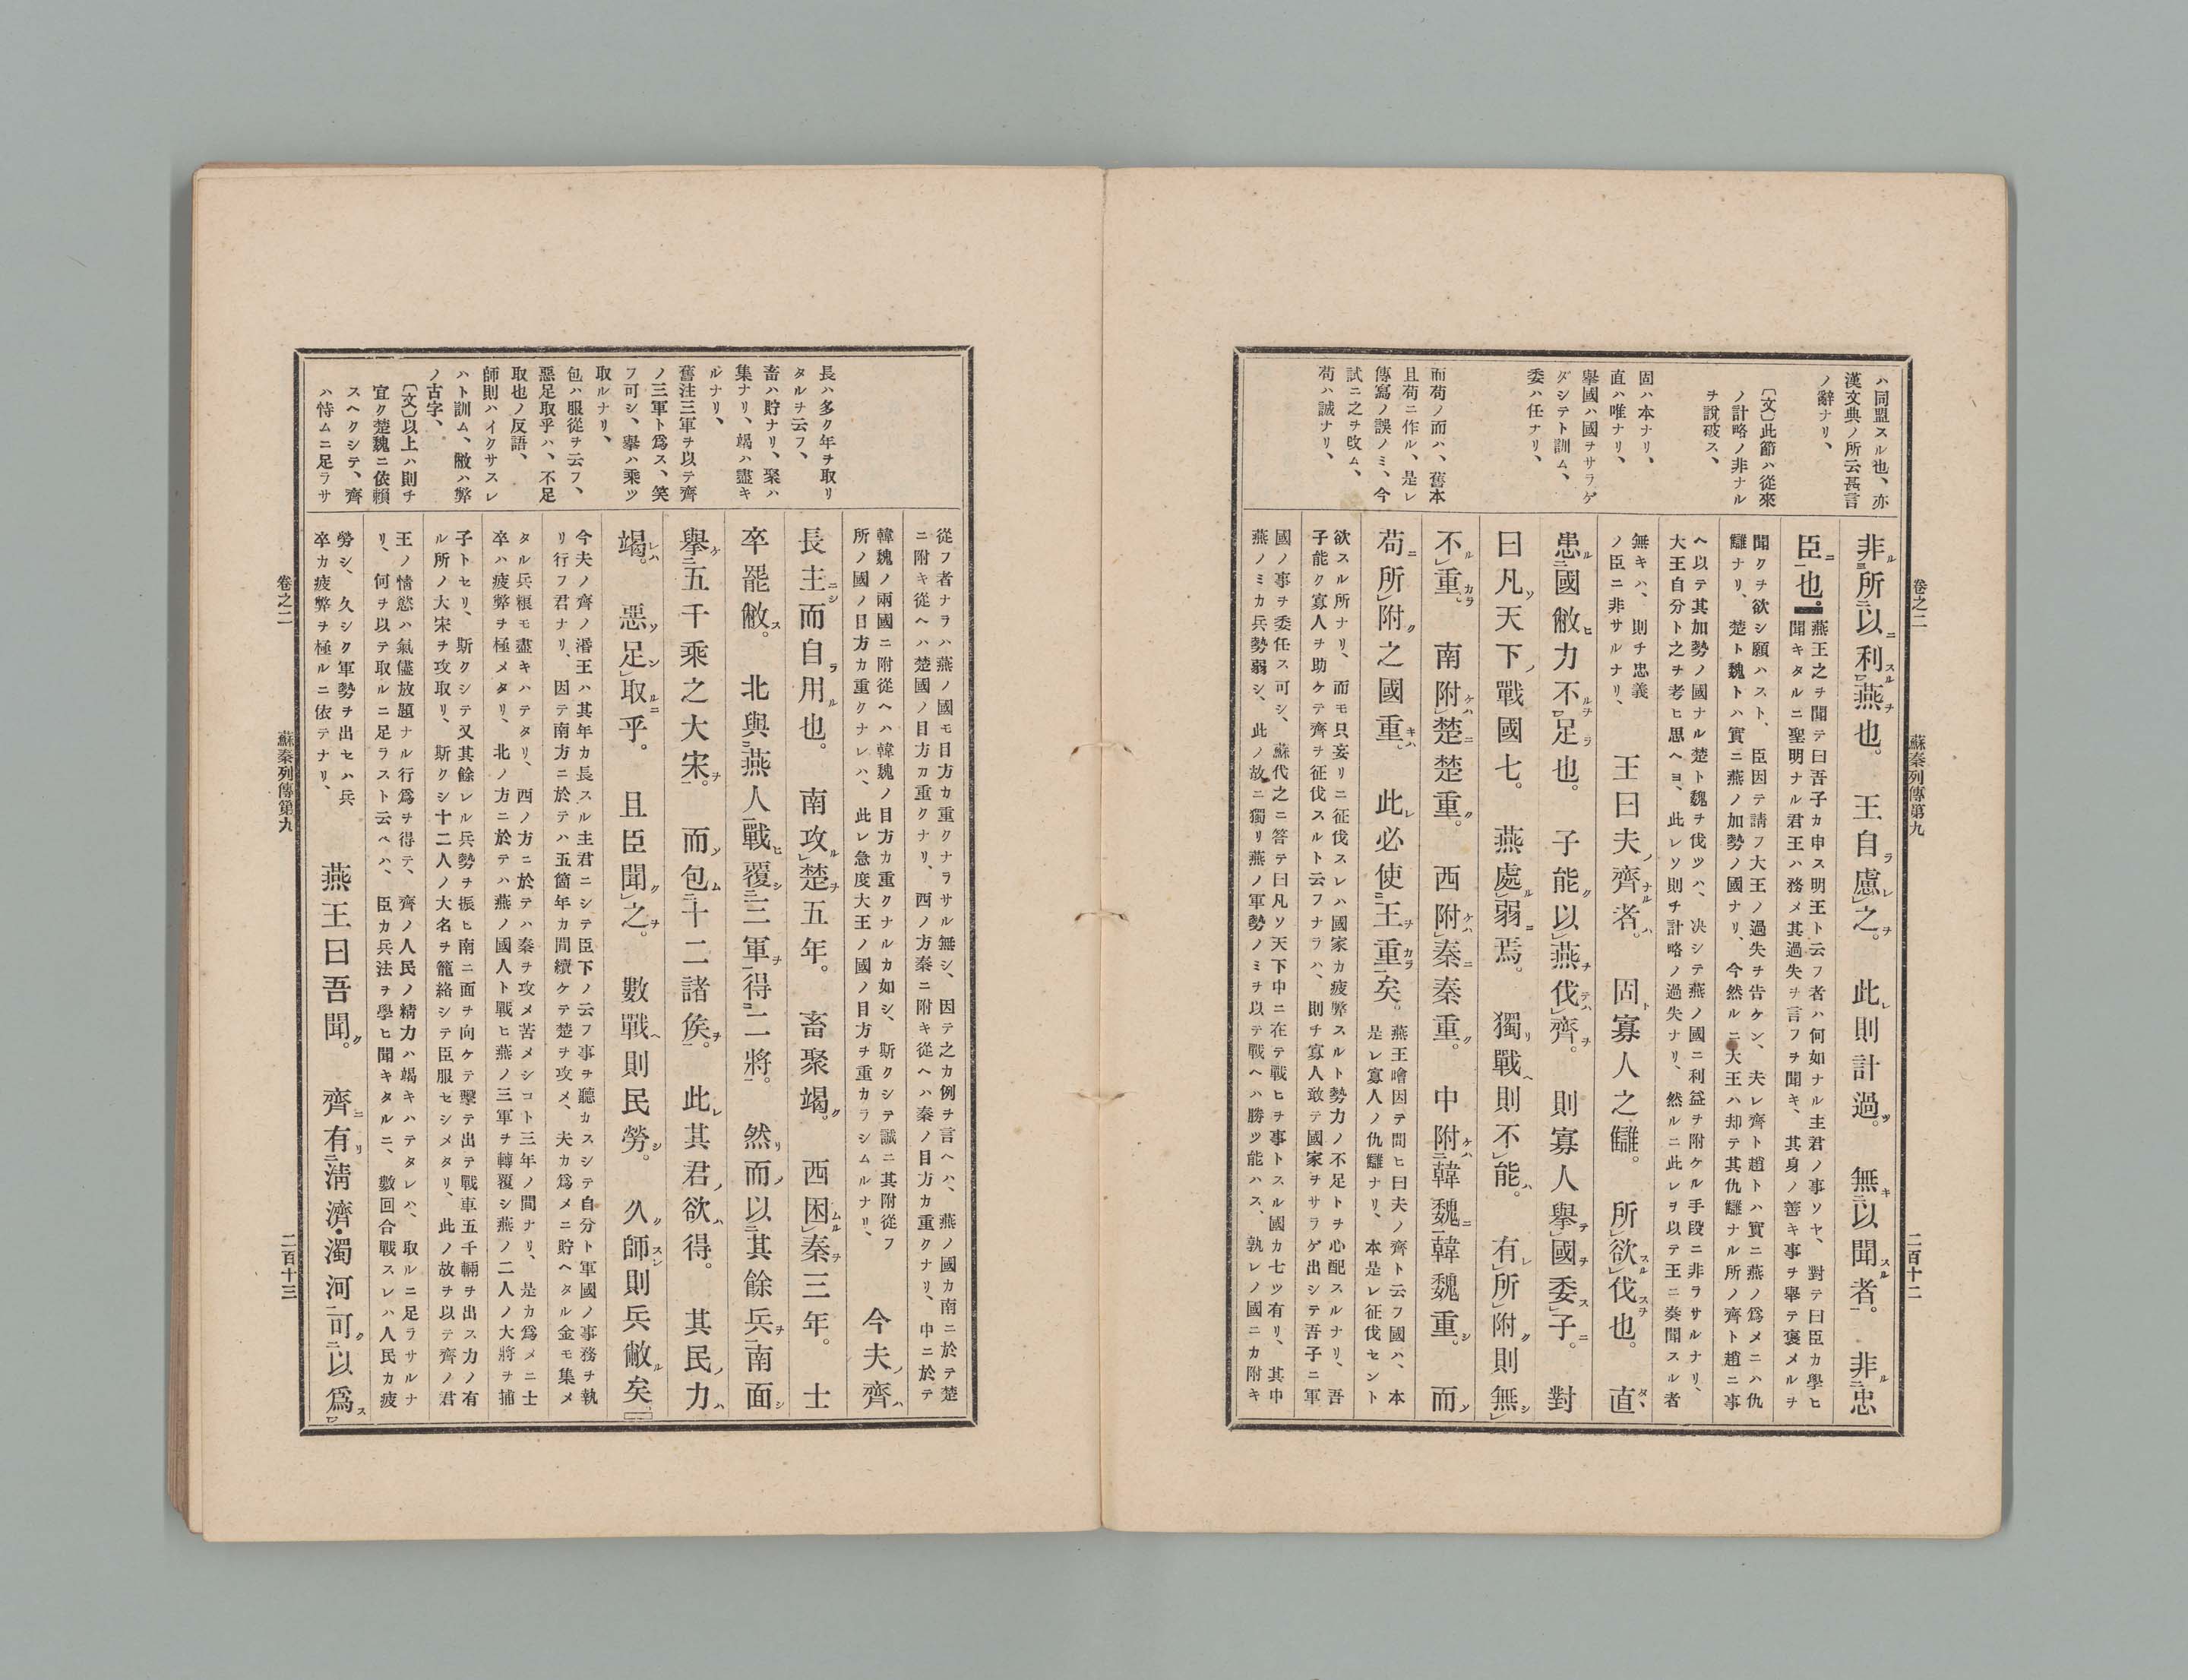 卷之二　蘇秦列傳第九　二百十二
ハ同盟スル也、亦
漢文典ノ所云甚言
ノ辭ナリ、
〔文〕此節ハ從來
ノ計略ノ非ナル
ヲ說破ス、
固ハ本ナリ、
直ハ唯ナリ、
擧國ハ國ヲサラゲ
ダシテト訓ム、
委ハ任ナリ、
而苟ノ而ハ、舊本
且苟ニ作ル、是レ
傳寫ノ誤ノミ、今
試ニ之ヲ改ム、
苟ハ誠ナリ、
非所以利燕也。王自慮之。此則計過。無以聞者。非忠
臣也
燕王之ヲ聞テ曰吾子カ申ス明王ト云フ者ハ何如ナル主君ノ事ソヤ、對テ曰臣カ學ヒ
聞キタルニ聖明ナル君王ハ務メ其過失ヲ言フヲ聞キ、其身ノ善キ事ヲ擧テ褒メルヲ
聞クヲ欲シ願ハスト、臣因テ請フ大王ノ過失ヲ告ケン、夫レ齊ト趙トハ實ニ燕ノ爲メニハ仇
讎ナリ、楚ト魏トハ實ニ燕ノ加勢ノ國ナリ、今然ルニ大王ハ却テ其仇讎ナル所ノ齊ト趙ニ事
ヘ以テ其加勢ノ國ナル楚ト魏ヲ伐ツハ、決シテ燕ノ國ニ利益ヲ附ケル手段ニ非ラサルナリ、
大王自分ト之ヲ考ヒ思ヘヨ、此レソ則チ計略ノ過失ナリ、然ルニ此レヲ以テ王ニ奏聞スル者
無キハ、則チ忠義
ノ臣ニ非サルナリ、
王曰夫齊者。固寡人之讎。所欲伐也。直
患國敝力不足也。子能以燕伐齊。則寡人擧國委子。對
曰凡天下戰國七。燕處弱焉。獨戰則不能。有所附則無
不重。南附楚楚重。西附秦秦重。中附韓魏韓魏重。而
苟所附之國重。此必使王重矣。
燕王噲因テ問ヒ曰夫ノ齊ト云フ國ハ、本
是レ寡人ノ仇讎ナリ、本是レ征伐セント
欲スル所ナリ、而モ只妄リニ征伐スレハ國家カ疲弊スルト勢力ノ不足トヲ心配スルナリ、吾
子能ク寡人ヲ助ケテ齊ヲ征伐スルト云フナラハ、則チ寡人敢テ國家ヲサラゲ出シテ吾子ニ軍
國ノ事ヲ委任ス可シ、蘇代之ニ答テ曰凡ソ天下中ニ在テ戰ヒヲ事トスル國カ七ツ有リ、其中
燕ノミカ兵勢弱シ、此ノ故ニ獨リ燕ノ軍勢ノミヲ以テ戰ヘハ勝ツ能ハス、孰レノ國ニカ附キ
長ハ多ク年ヲ取リ
タルヲ云フ、
畜ハ貯ナリ、聚ハ
集ナリ、竭ハ盡キ
ルナリ、
舊注三軍ヲ以テ齊
ノ三軍ト爲ス、笑
フ可シ、擧ハ乘ツ
取ルナリ、
包ハ服從ヲ云フ、
惡足取乎ハ、不足
取也ノ反語、
師則ハイクサスレ
ハト訓ム、敝ハ弊
ノ古字、
〔文〕以上ハ則チ
宜ク楚魏ニ依賴
スヘクシテ、齊
ハ恃ムニ足ラサ
從フ者ナラハ燕ノ國モ目方カ重クナラサル無シ、因テ之カ例ヲ言ヘハ、燕ノ國カ南ニ於テ楚
ニ附キ從ヘハ楚國ノ目方カ重クナリ、西ノ方秦ニ附キ從ヘハ秦ノ目方カ重クナリ、中ニ於テ
韓魏ノ兩國ニ附從ヘハ韓魏ノ目方カ重クナルカ如シ、斯クシテ誠ニ其附從フ
所ノ國ノ目方カ重クナレハ、此レ急度大王ノ國ノ目方ヲ重カラシムルナリ、
今夫齊
長主而自用也。南攻楚五年。畜聚竭。西困秦三年。士
卒罷敝。北與燕人戰覆三軍得二將。然而以其餘兵南面
擧五千乘之大宋。而包十二諸矦。此其君欲得。其民力
竭。惡足取乎。且臣聞之。數戰則民勞。久師則兵敝矣
今夫ノ齊ノ湣王ハ其年カ長スル主君ニシテ臣下ノ云フ事ヲ聽カスシテ自分ト軍國ノ事務ヲ執
リ行フ君ナリ、因テ南方ニ於テハ五箇年カ間續ケテ楚ヲ攻メ、夫カ爲メニ貯ヘタル金モ集メ
タル兵粮モ盡キハテタリ、西ノ方ニ於テハ秦ヲ攻メ苦メシコト三年ノ間ナリ、是カ爲メニ士
卒ハ疲弊ヲ極メタリ、北ノ方ニ於テハ燕ノ國人ト戰ヒ燕ノ三軍ヲ轉覆シ燕ノ二人ノ大將ヲ捕
子トセリ、斯クシテ又其餘レル兵勢ヲ振ヒ南ニ面ヲ向ケテ擊テ出テ戰車五千輛ヲ出ス力ノ有
ル所ノ大宋ヲ攻取リ、斯クシ十二人ノ大名ヲ籠絡シテ臣服セシメタリ、此ノ故ヲ以テ齊ノ君
王ノ情慾ハ氣儘放題ナル行爲ヲ得テ、齊ノ人民ノ精力ハ竭キハテタレハ、取ルニ足ラサルナ
リ、何ヲ以テ取ルニ足ラスト云ヘハ、臣カ兵法ヲ學ヒ聞キタルニ、數回合戰スレハ人民カ疲
勞シ、久シク軍勢ヲ出セハ兵
卒カ疲弊ヲ極ルニ依テナリ、
燕王曰吾聞。齊有淸濟・濁河可以爲
卷之二　蘇秦列傳第九　二百十三